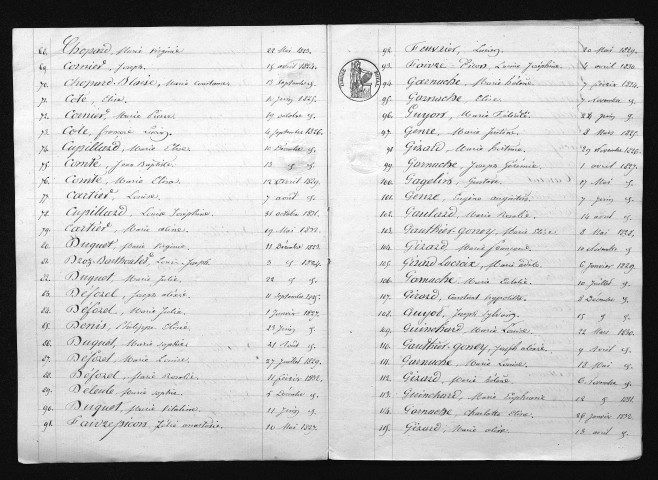 68. Chopard, Marie Virginie 22 Mai 1823.
69. Cornier, Joseph 15 avril 1824.
70. Chopard-Blaise, Marie Constance 13 Septembre id.
71. Cote, Elise 1825.
72. Cornier, Marie Pierre 19 octobre id.
73. Cote, François 4 Septembre 1826.
74. Cupillard, Marie Elise 10 Décembre id.
75. Comte, Jean Baptiste 13 id. id.
76. Comte, Marie Elise 12 avril 1829.
77. Cartier, Louise 7 août id.
78. Cupillard, Louise Joséphine 31 octobre 1831.
79. Cartier, Marie 19 Mai 1832.
80. Duquet, Marie Virginie 11 Décembre 1823.
81. Droz-Barthoulet, Louis Joseph 3 id. 1824.
82. Duquet, Marie Julie 22 id. id.
83. Déforet, Joseph 11 Septembre 1825.
84. Déforet, Marie Julie 1 Janvier 1827.
85. Denis, Philippe 23 Juin id.
86. Duquet, Marie Sophie 28 Août id.
87. Déforet, Marie Louise 27 Juillet 1829.
88. Déforet, Marie Rosalie 11 février 1832.
89. Deleule, Marie Sophie 5 Décembre id.
90. Duquet, Marie 11 id.
91. Faivre-picon, Julie anastasie 10 Mai 1827.
92. Feuvrier, 20 Mai 1829.
93. Faivre Picon, Louise Joséphine 2 avril 1830.
94. Garnache, Marie 7 février 1824.
95. Garnache, Elise 7 novembre id.
96. Guyon, Marie Félicité 28 Juin id.
97. Genre, Marie Justine 8 Mars 1825.
98. Gérard, Marie 29 novembre 1826.
99. Garnache, Joseph Jérémie 1 avril 1827.
100. Gagelin, Gustave 17 Mai id.
101. Genre, Eugène Augustin 7 Juin id.
102. Gaulard, Marie Rosalie 14 avril id.
103. Gauthier-Goney, Marie Elise 8 Mai 1828.
104. Gérard, Marie 10 novembre id.
105. Girard Lacroix, Marie adèle 6 janvier 1829.
106. Garnache, Marie 10 juillet id.
107. Girard, Constant hyppolite 8 Décembre id.
108. Guyot, Joseph 15 id. id.
109. Guinchard, Marie Louise 22 Mars 1830.
110. Gauthier-Goney, Joseph 9 Avril id.
111. Garnache, Marie Louise 13 Mai id.
112. Gérard, Marie 6 novembre id.
113. Guinchard, Marie Euphrasie 18 id. 1831.
114. Garnache, Charlotte Elise 26 Janvier 1832.
115. Gérard, Marie 13 avril id.